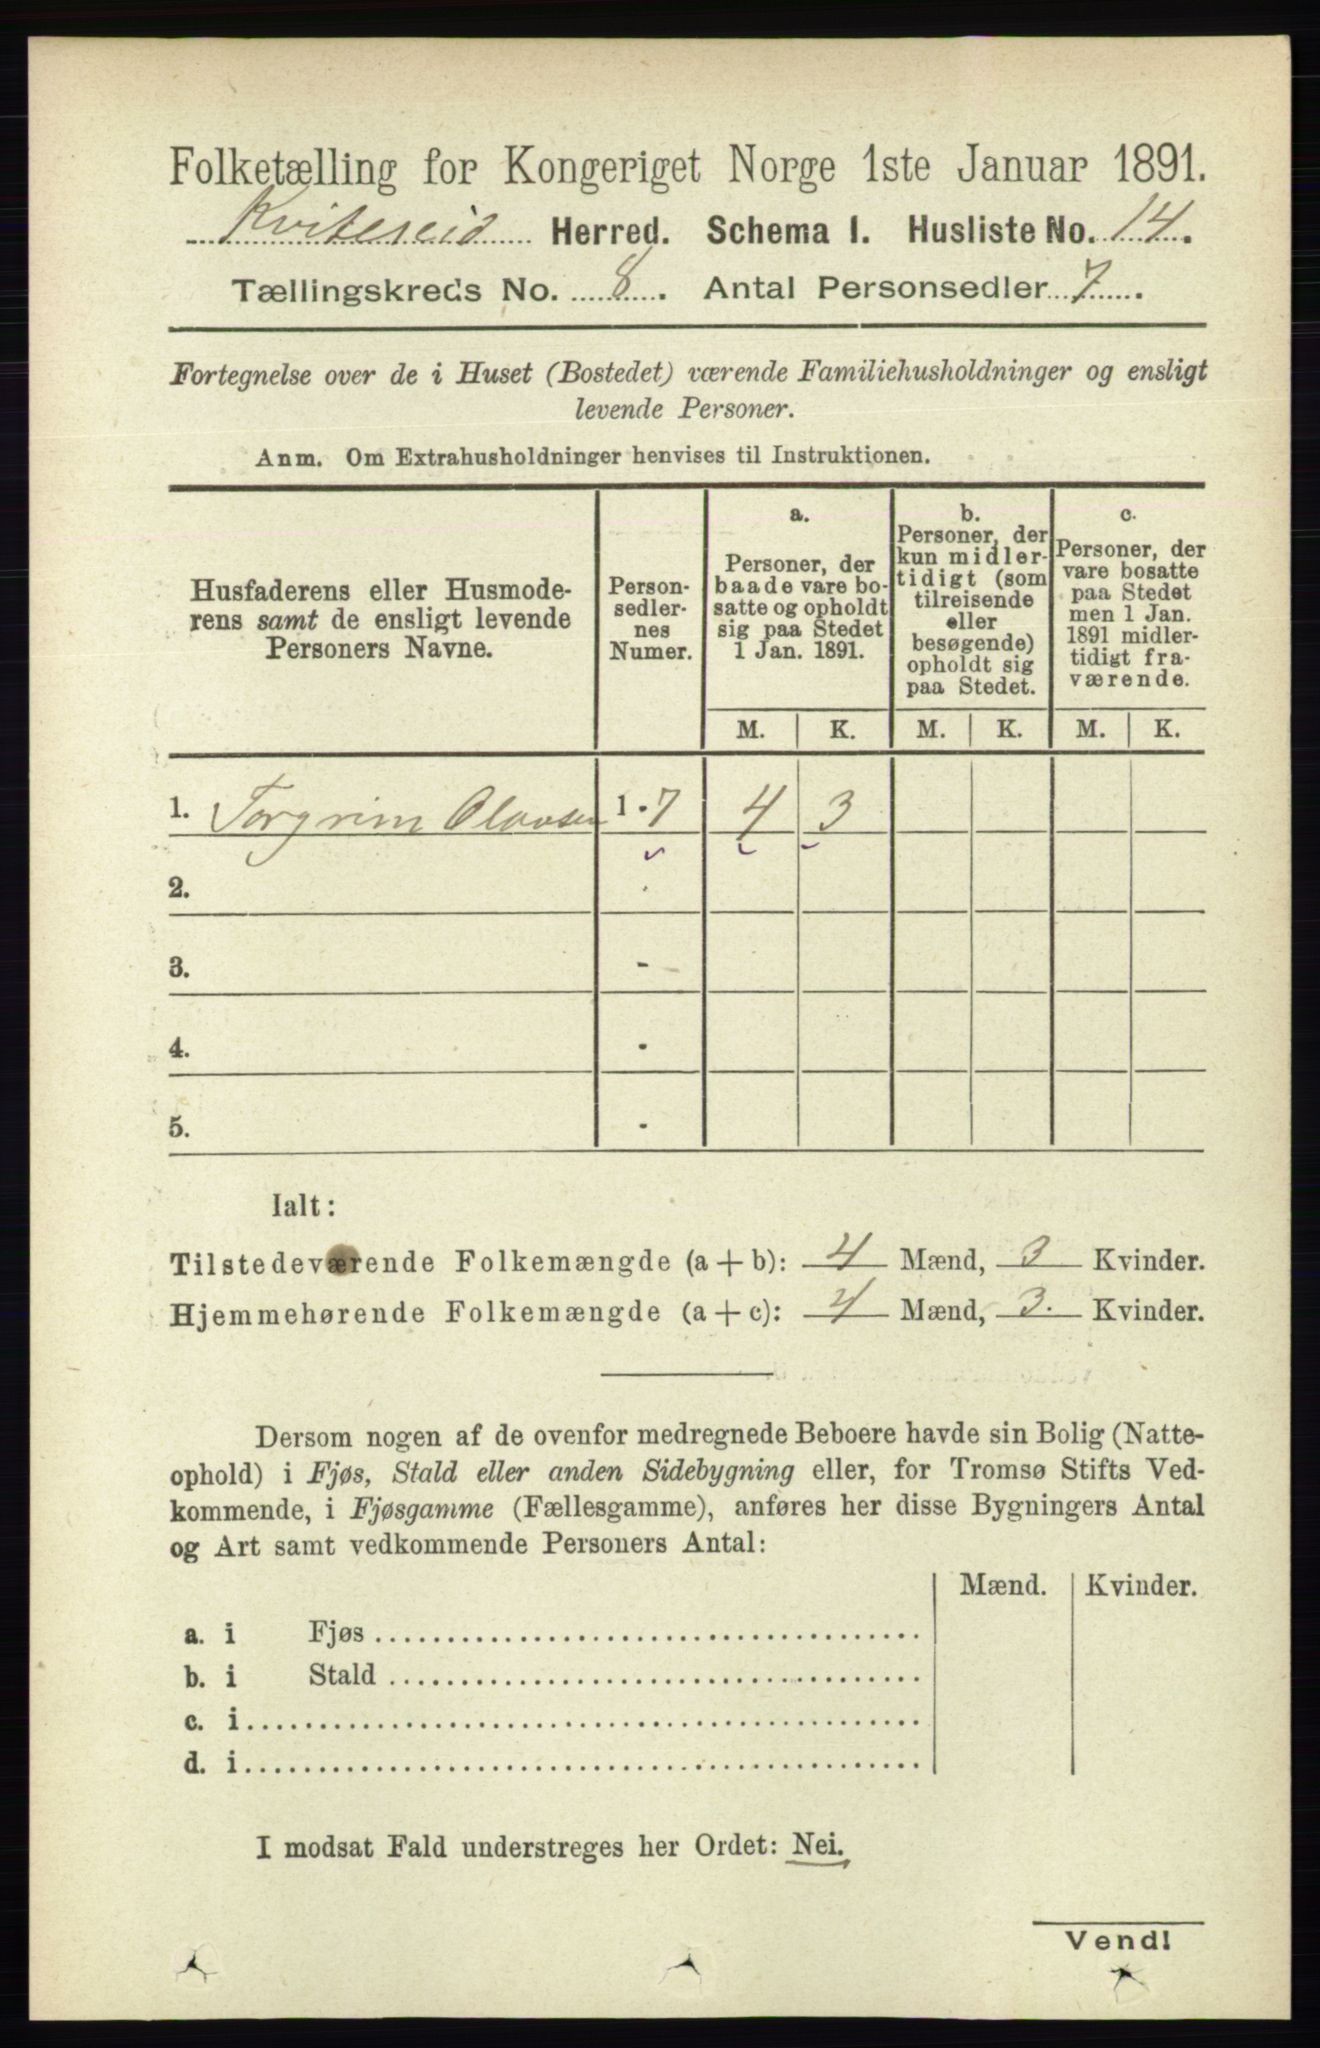 Folketælling for Kongeriget Norge 1ste Januar 1891.
Kviteseid Herred. Schema I. Husliste No. 14.
Tællingskreds No. 8. Antal Personsedler 7.
Fortegnelse over de i Huset (Bostedet) værende Familiehusholdninger og ensligt
levende Personer.
Anm. Om Extrahusholdninger henvises til Instruktionen.
Husfaderens eller Husmode-
rens samt de ensligt levende
Personers Navne.
Person-
sedler-
nes
Numer.
a.
Personer, der
baade vare bo-
satte og opholdt
sig paa Stedet
1 Jan. 1891.
b.
Personer, der
kun midler-
tidigt (som
tilreisende
eller
besøgende)
opholdt sig
paa Stedet.
c.
Personer, der
vare bosatte
paa Stedet
men 1 Jan.
1891 midler-
tidigt fra-
værende.
M. K. M. K. M. K.
1. Torgrim Olavsen 1 - 7 4 3
2. -
3. -
4. -
5. -
Ialt:
Tilstedeværende Folkemængde (a + b): 4 Mænd, 3 Kvinder.
Hjemmehørende Folkemængde (a + c): 4 Mænd, 3. Kvinder.
Dersom nogen af de ovenfor medregnede Beboere havde sin Bolig (Natte-
ophold) i Fjøs, Stald eller anden Sidebygning eller, for Tromsø Stifts Ved-
kommende, i Fjøsgamme (Fællesgamme), anføres her disse Bygningers Antal
og Art samt vedkommende Personers Antal:
Mænd. Kvinder.
a. i Fjøs
b. i Stald
c. i
d. i
I modsat Fald understreges her Ordet: Nei.
Vend!